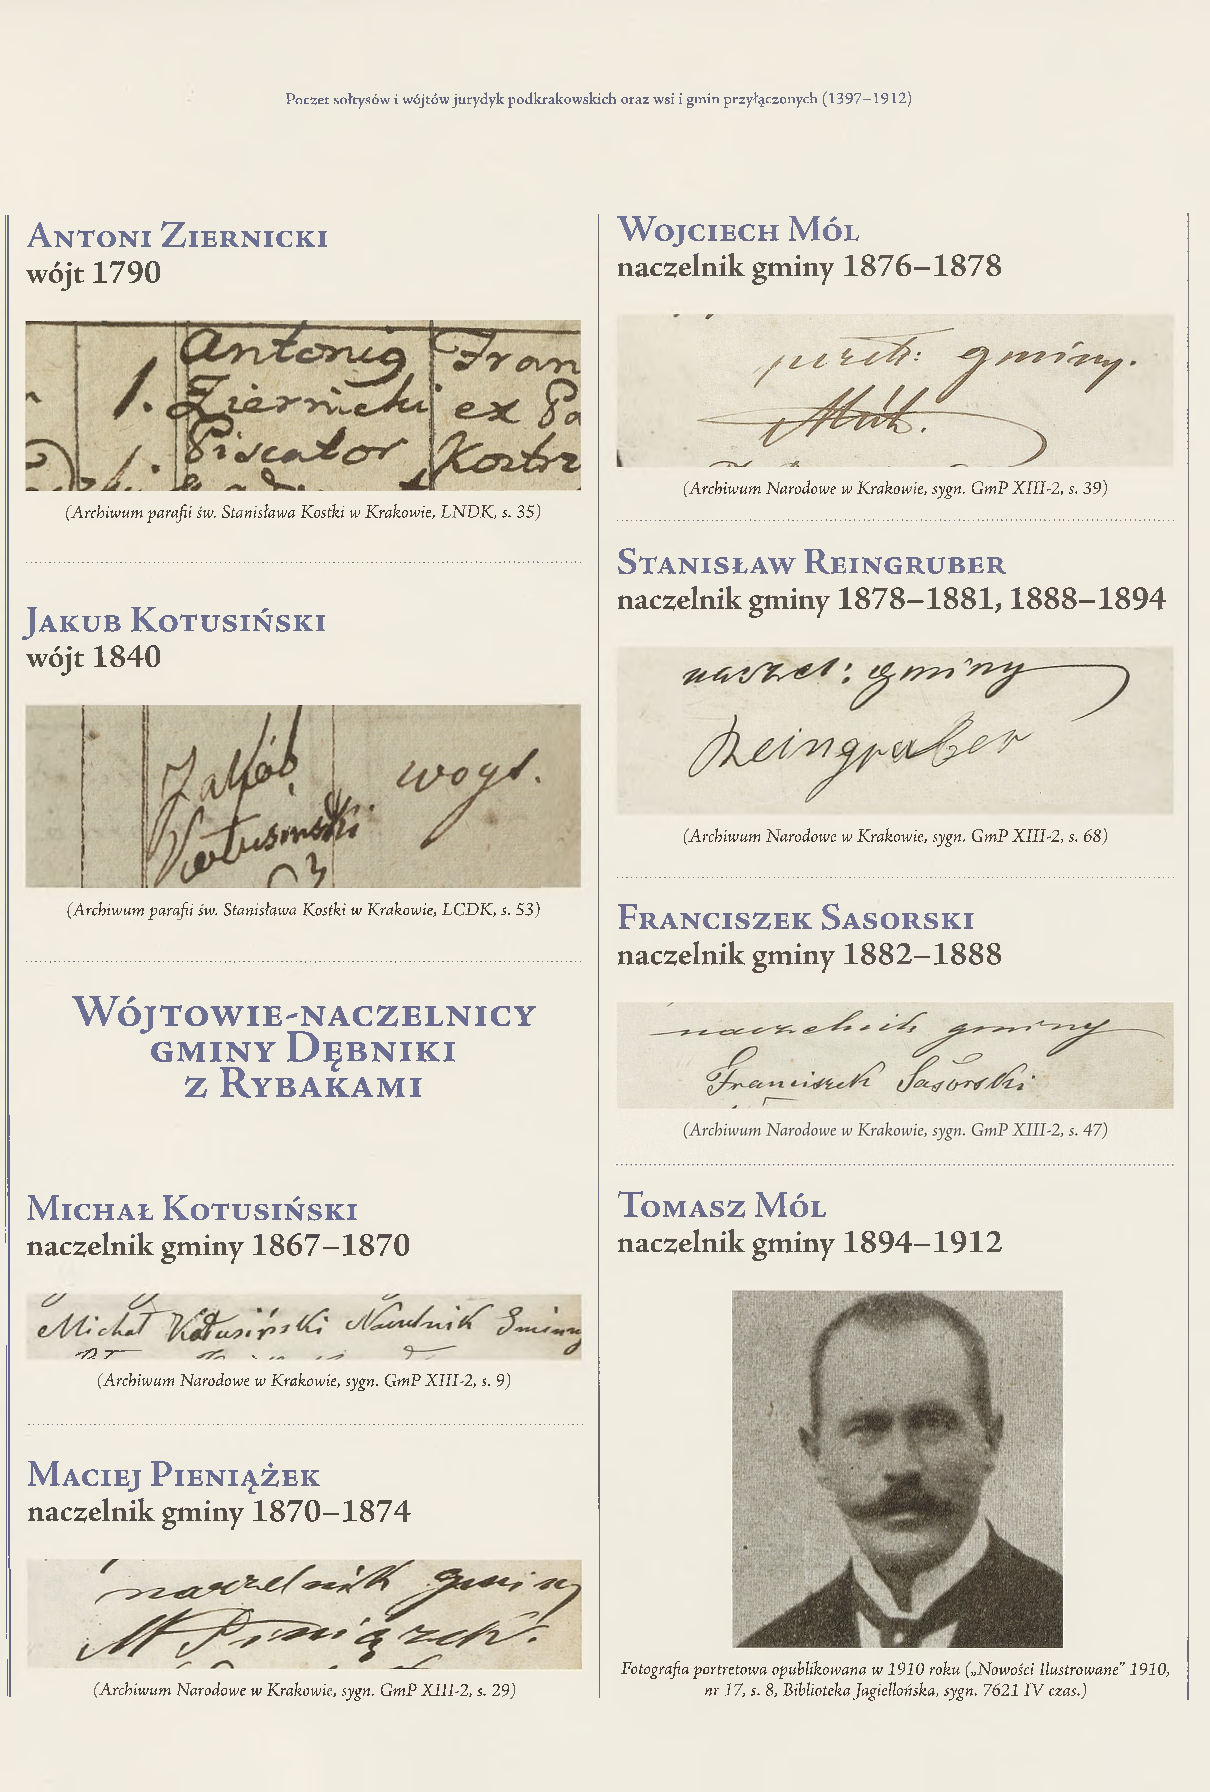 Poczet sołtysów i wójtów jurydyk podkrakowskich oraz wsi i gmin przyłączonych (1397–1912)
Antoni Ziernicki
wójt 1790
Antonig Fran
1. Ziernicki ex Pa
Piscator Kostrz
(Archiwum parafii św. Stanisława Kostki w Krakowie, LNDK, s. 35)
Jakub Kotusiński
wójt 1840
Jakób woyt.
Kotusinski
(Archiwum parafii św. Stanisława Kostki w Krakowie, LCDK, s. 53)
Wójtowie-naczelnicy
gminy Dębniki
z Rybakami
Michał Kotusiński
naczelnik gminy 1867–1870
Michał Kotusiński Naczelnik Gminy
(Archiwum Narodowe w Krakowie, sygn. GmP XIII-2, s. 9)
Maciej Pieniążek
naczelnik gminy 1870–1874
naczelnik gminy
M Pieniążek.
(Archiwum Narodowe w Krakowie, sygn. GmP XIII-2, s. 29)
Wojciech Mól
naczelnik gminy 1876–1878
gminy.
Mól.
(Archiwum Narodowe w Krakowie, sygn. GmP XIII-2, s. 39)
Stanisław Reingruber
naczelnik gminy 1878–1881, 1888–1894
naczel: gminy
Reingruber
(Archiwum Narodowe w Krakowie, sygn. GmP XIII-2, s. 68)
Franciszek Sasorski
naczelnik gminy 1882–1888
naczelnik gminy
Franciszek Sasorski
(Archiwum Narodowe w Krakowie, sygn. GmP XIII-2, s. 47)
Tomasz Mól
naczelnik gminy 1894–1912
Fotografia portretowa opublikowana w 1910 roku („Nowości Ilustrowane” 1910,
nr 17, s. 8, Biblioteka Jagiellońska, sygn. 7621 IV czas.)